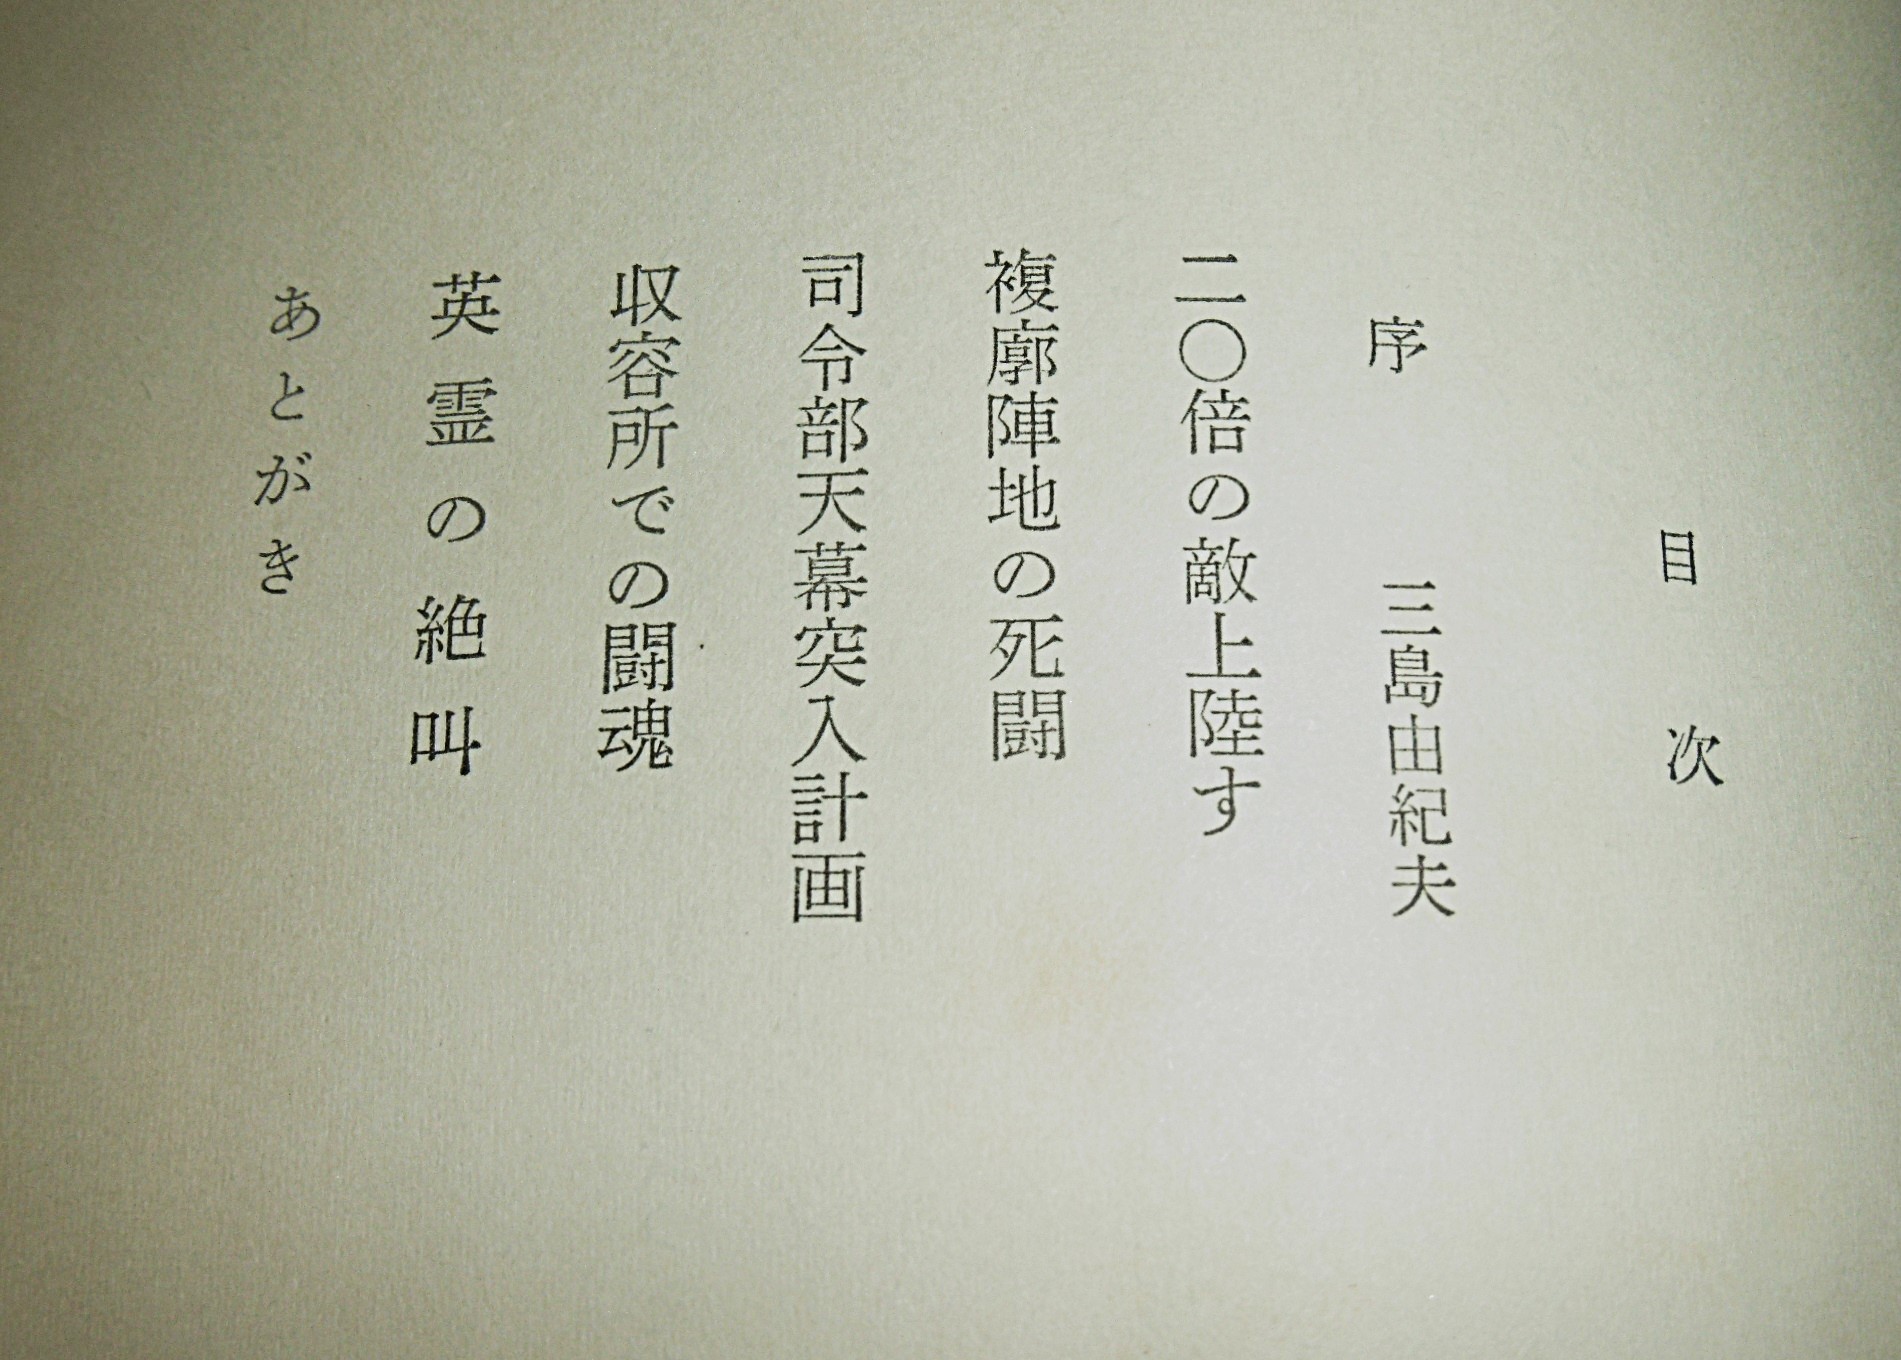 目次
序　三島由紀夫
二〇倍の敵上陸す
複廓陣地の死闘
司令部天幕突入計画
収容所での闘魂
英霊の絶叫
あとがき